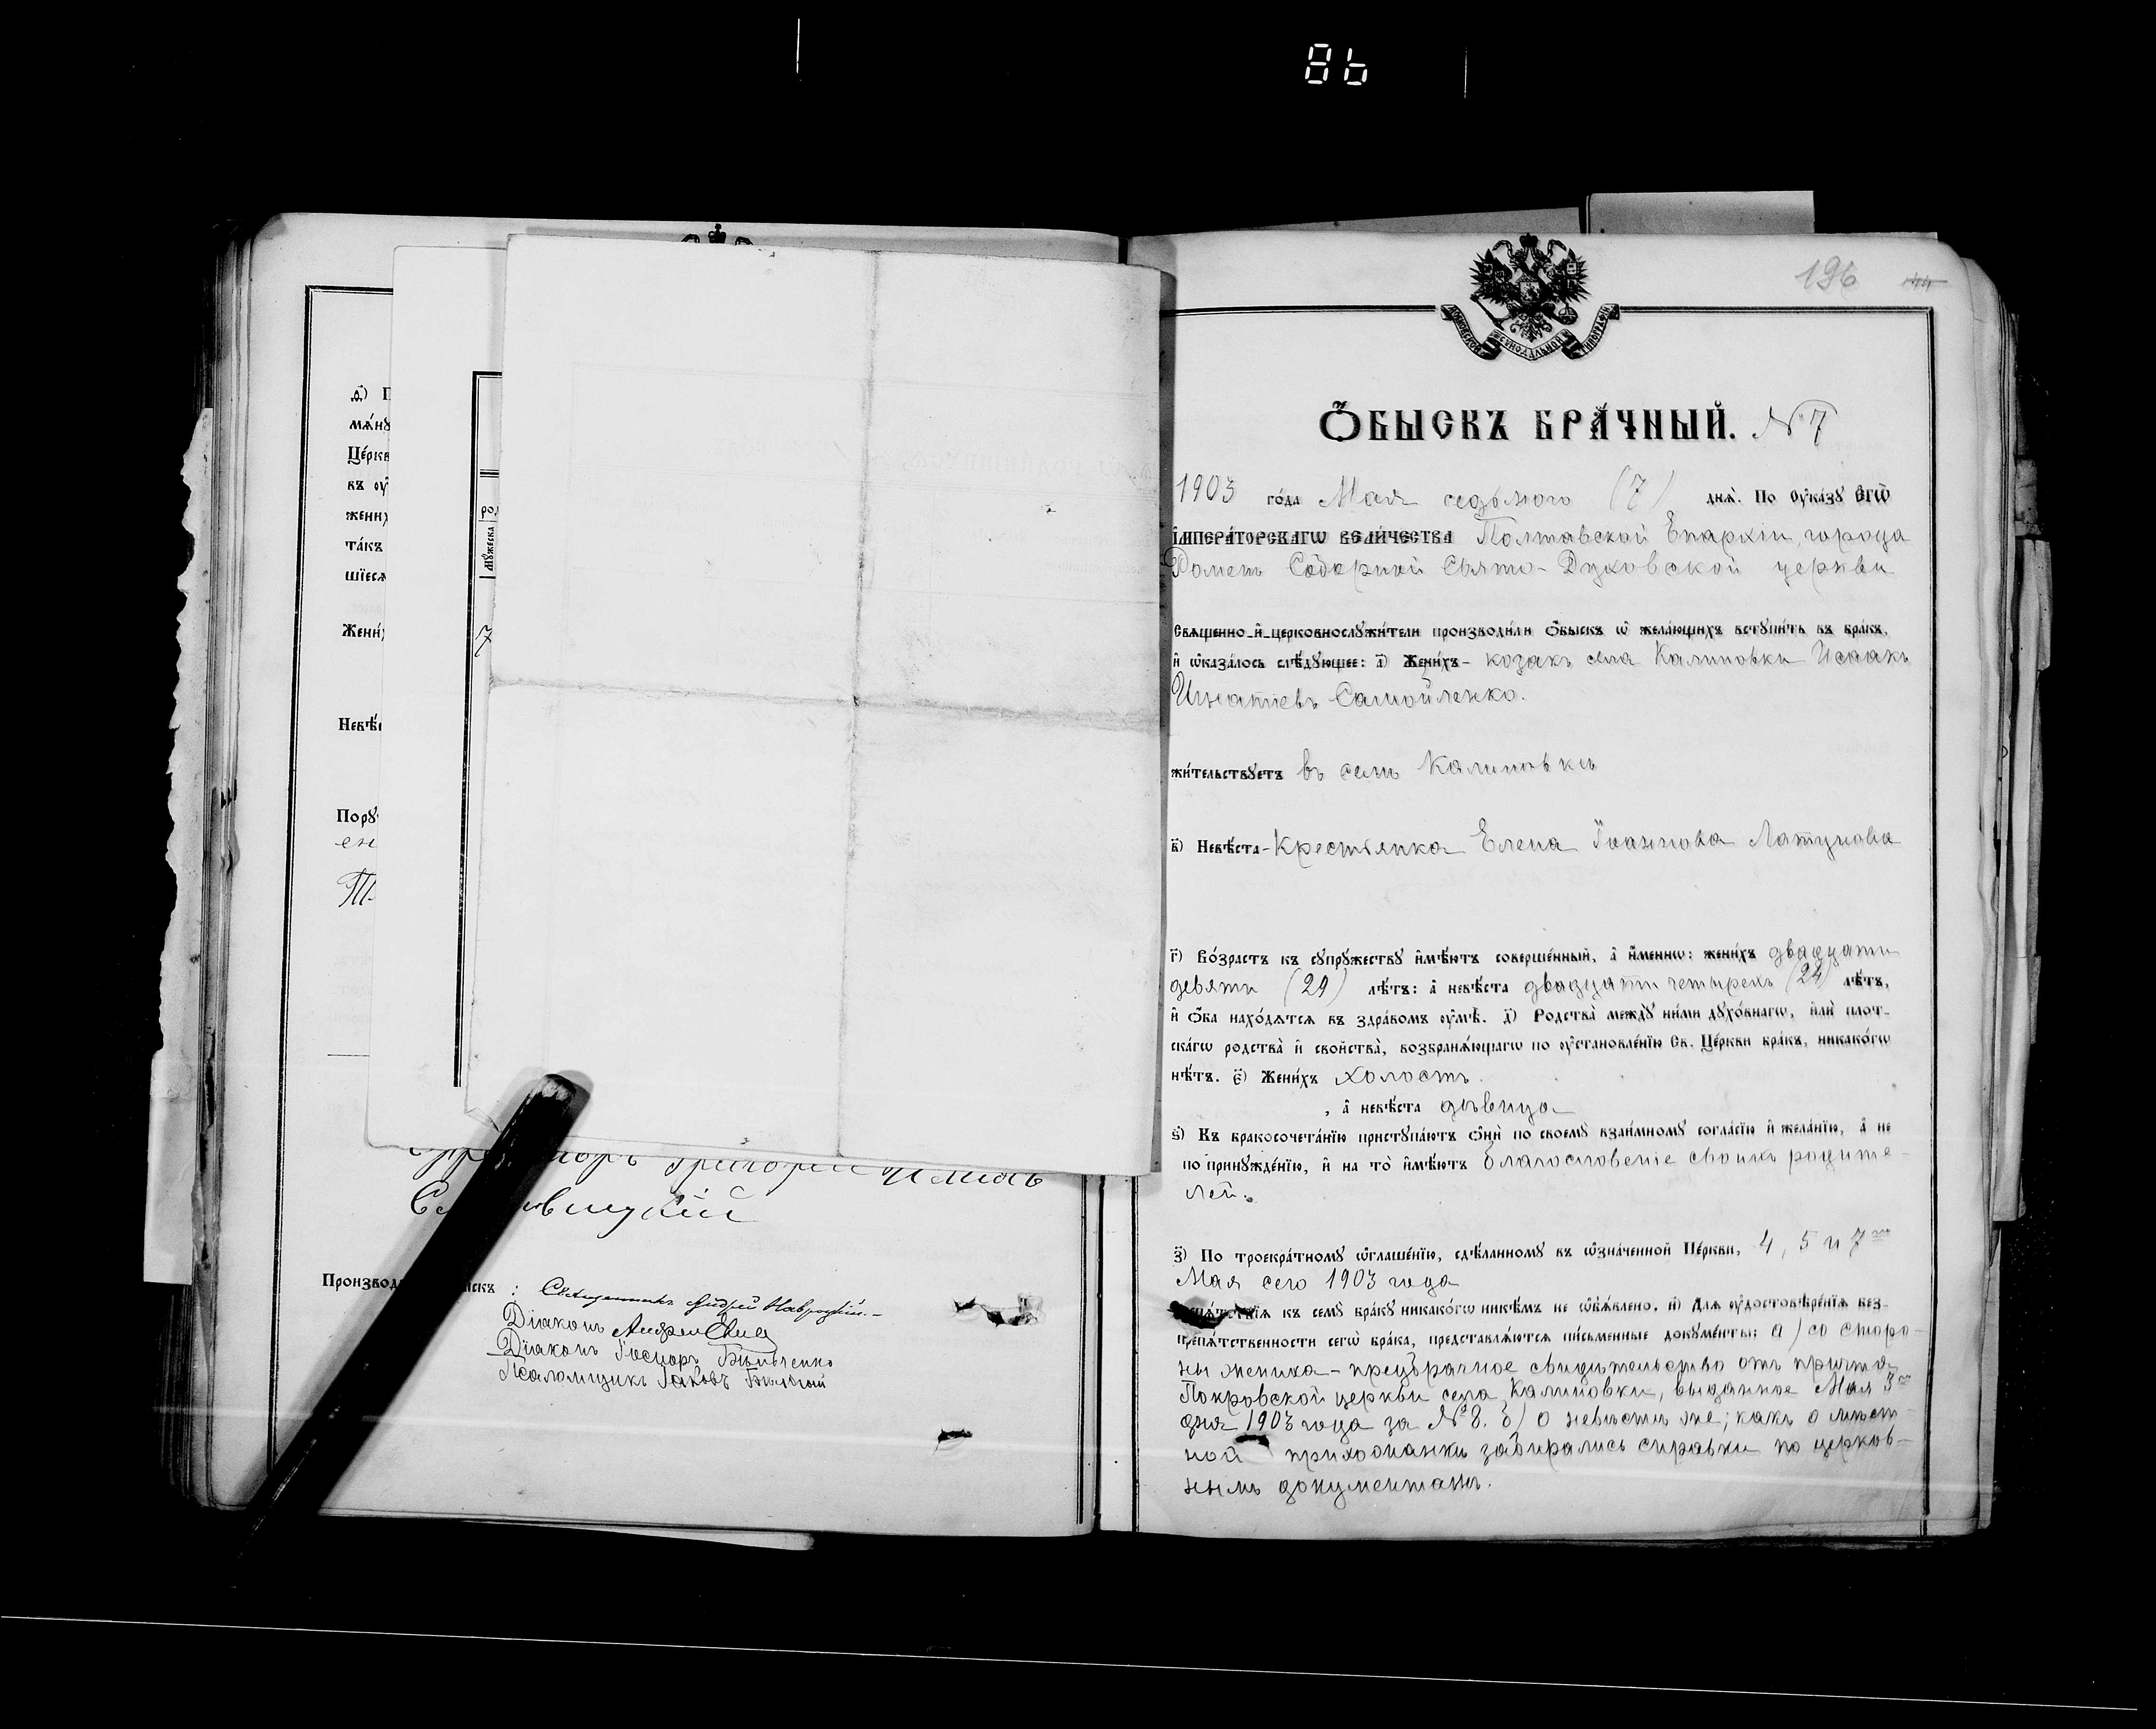 86
д҃) П
мѧ́нꙋ
Це́ркв
въ оу҆
жени́х
та́къ
шїесѧ
Жени́х
Невѣ́с
Порꙋ
ен
Григорій
Производ
скъ : Священникъ Андрей Навроцкій.-
Діаконъ Андрей
Діаконъ
Псаломщикъ Іаковъ
мꙋжеска
7
196
МОСКОВСКОЙ СѴНОДАЛЬНОЙ ТИПОГРАФІИ
Ѻ҆БЫСКЪ БРА́ЧНЫЙ. № 7
1903 го́да Мая седьмого (7) днѧ̀. По оу҆ка́зꙋ Є҆гѡ̀
І҆МПЕРА́ТОРСКАГѠ ВЕЛИ́ЧЕСТВА Полтавской Епархіи, города
Роменъ Соборной Свято-Духовской церкви
Свѧщенно-и҆-церковнослꙋжи́тели производи́ли ѻ҆́быскъ ѡ҆ жела́ющихъ встꙋпи́ть въ бра́къ,
и҆ ѡ҆каза́лось слѣ́дꙋющее: а҃) Жени́хъ - козакъ села Калиновки Исаакъ
Игнатіевъ Самойленко.
жи́тельствꙋетъ въ селѣ Калиновкѣ
в҃) Невѣ́ста - Крестьянка Елена Іоаннова Латунова
г҃) Во́зрастъ къ сꙋпрꙋ́жествꙋ и҆мѣ́ютъ соверше́нный, а҆ и҆́менно: жени́хъ двадцати
девяти (29) лѣ́тъ: а҆ невѣ́ста двадцати четырехъ (24) лѣ́тъ,
и҆ ѻ҆́ба нахо́дѧтсѧ въ здра́вомъ оу҆мѣ̀. д҃) Родства̀ междꙋ̀ ни́ми дꙋхо́внагѡ, и҆лѝ плот-
ска́гѡ родства̀ и҆ свойства̀, возбранѧ́ющагѡ по оу҆становле́нїю Св. Це́ркви бра́къ, никако́гѡ
нѣ́тъ. є҃) Жени́хъ холостъ
, а҆ невѣ́ста дѣвица
ѕ҃) Къ бракосочета́нїю пристꙋпа́ютъ ѻ҆нѝ по своемꙋ̀ взаи́мномꙋ согла́сїю и҆ жела́нїю, а҆ не
по принꙋжде́нїю, и҆ на то̀ и҆мѣ́ютъ благословеніе своихъ родите-
лей.
з҃) По троекра́тномꙋ ѡ҆глаше́нїю, сдѣ́ланномꙋ въ ѡ҆зна́ченной Це́ркви, 4, 5 и 7го
Мая сего 1903 года
препѧ́тствїѧ къ семꙋ̀ бра́кꙋ никако́гѡ никѣ́мъ не ѡ҆б̾ѧ́влено. и҃) Длѧ оу҆достовѣре́нїѧ без-
препѧ́тственности сегѡ̀ бра́ка, представлѧ́ютсѧ пи́сьменные докꙋме́нты: а) со сторо-
ны жениха - предбрачное свидѣтельство отъ причта
Покровской церкви села Калиновки, выданное Мая 3го
дня 1903 года за № 8. б) о невѣстѣ же; какъ о мѣст-
ной прихожанкѣ забирались справки по церков-
нымъ документамъ.